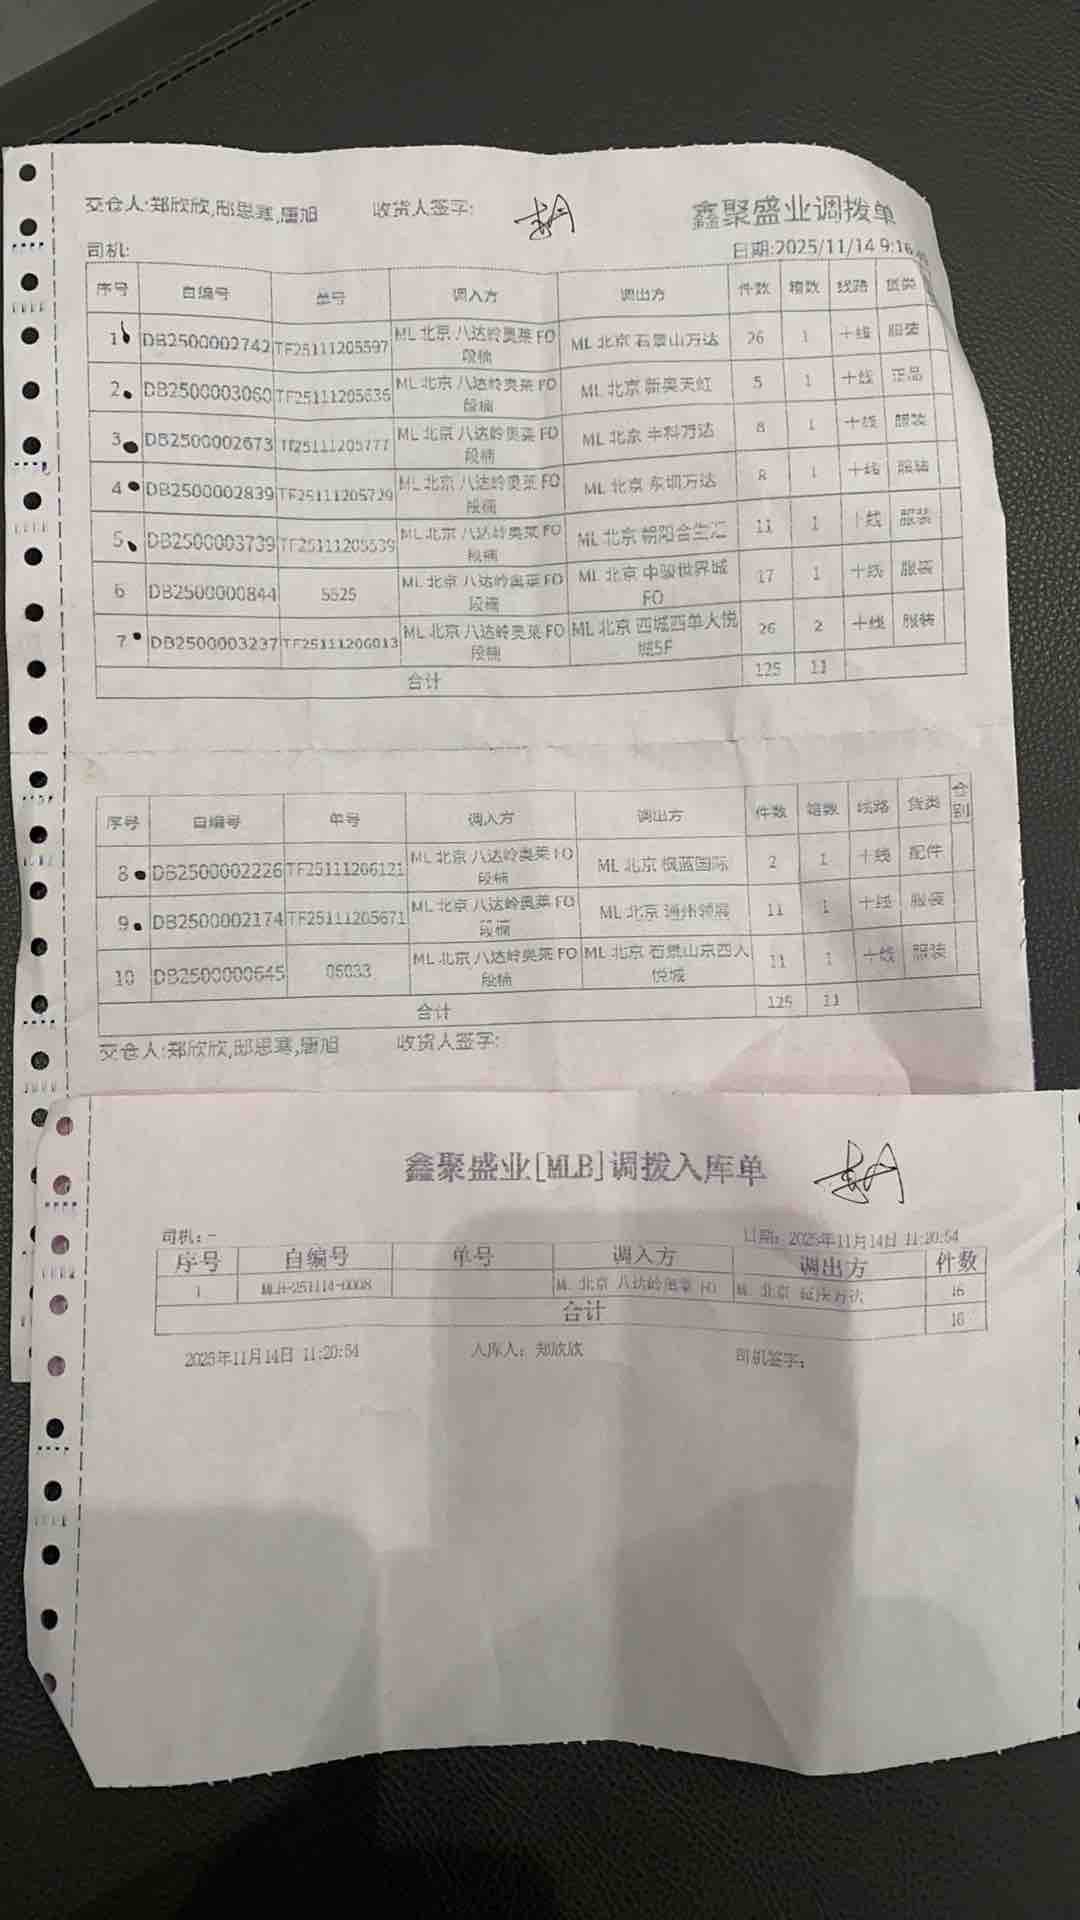 交仓人:郑欣欣,邸思寒,唐旭 收货人签字: 鑫聚盛业调拨单
司机: 日期:2025/11/14 9:16
序号 自编号 单号 调入方 调出方 件数 箱数 线路 货类
1 DB2500002742 TF25111205597 ML 北京 八达岭奥莱 FO 段楠 ML 北京 石景山万达 26 1 十线 服装
2 DB2500003060 TF25111205636 ML 北京 八达岭奥莱 FO 段楠 ML 北京 新奥天虹 5 1 十线 正品
3 DB2500002673 TF25111205777 ML 北京 八达岭奥莱 FO 段楠 ML 北京 丰科万达 8 1 十线 服装
4 DB2500002839 TF25111205729 ML 北京 八达岭奥莱 FO 段楠 ML 北京 东坝万达 8 1 十线 服装
5 DB2500003739 TF25111205539 ML 北京 八达岭奥莱 FO 段楠 ML 北京 朝阳合生汇 11 1 十线 服装
6 DB2500000844 5525 ML 北京 八达岭奥莱 FO 段楠 ML 北京 中骏世界城 FO 17 1 十线 服装
7 DB2500003237 TF25111206013 ML 北京 八达岭奥莱 FO 段楠 ML 北京 西城西单大悦城5F 26 2 十线 服装
合计 125 11
序号 自编号 单号 调入方 调出方 件数 箱数 线路 货类 仓别
8 DB2500002226 TF25111206121 ML 北京 八达岭奥莱 FO 段楠 ML 北京 枫蓝国际 2 1 十线 配件
9 DB2500002174 TF25111205671 ML 北京 八达岭奥莱 FO 段楠 ML 北京 通州领展 11 1 十线 服装
10 DB2500000645 05033 ML 北京 八达岭奥莱 FO 段楠 ML 北京 石景山京西大悦城 11 1 十线 服装
合计 125 11
交仓人:郑欣欣,邸思寒,唐旭 收货人签字:
鑫聚盛业[MLB]调拨入库单
司机:- 日期: 2025年11月14日 11:20:54
序号 自编号 单号 调入方 调出方 件数
1 MLB-251114-0008 ML 北京 八达岭奥莱 FO ML 北京 延庆万达 16
合计 16
2025年11月14日 11:20:54 入库人: 郑欣欣 司机签字: